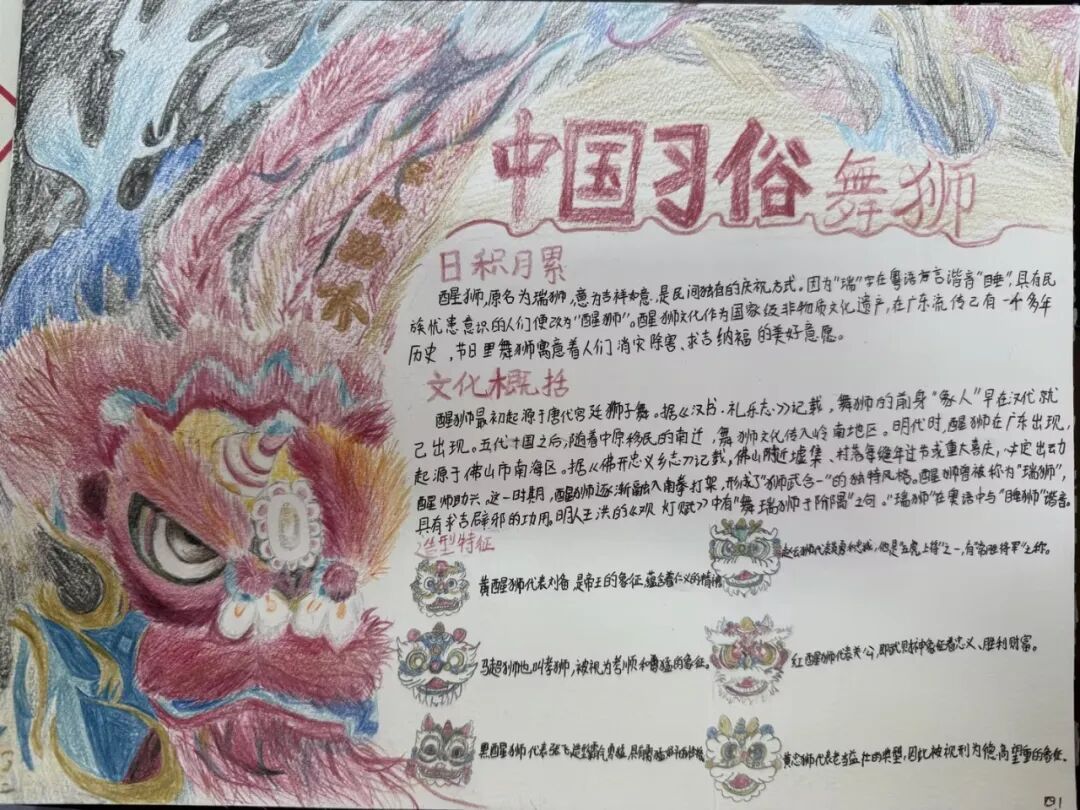 中国习俗 舞狮
日积月累
醒狮,原名为瑞狮,意为吉祥如意,是民间独有的庆祝方式。因为"瑞"字在粤语方言谐音"睡",具有民
族忧患意识的人们便改为"醒狮"。醒狮文化作为国家级非物质文化遗产,在广东流传已有一千多年
历史,节日里舞狮寓意着人们消灾除害、求吉纳福的美好意愿。
文化概括
醒狮最初起源于唐代宫廷狮子舞。据《汉书·礼乐志》记载,舞狮的前身"象人"早在汉代就
已出现。五代十国之后,随着中原移民的南迁,舞狮文化传入岭南地区。明代时,醒狮在广东出现,
起源于佛山市南海区。据《佛开忠义乡志》记载,佛山附近墟集、村落每逢年过节或重大喜庆,必定出动
醒狮助兴。这一时期,醒狮逐渐融入南拳打架,形成了"狮武合一"的独特风格。醒狮曾被称为"瑞狮",
具有求吉辟邪的功用。明人王洪的《观灯赋》中有"舞瑞狮于阶"之句。"瑞狮"在粤语中与"睡狮"谐音。
造型特征
黄醒狮代表刘备,是帝王的象征,蕴含着仁义的情
赵云狮代表英勇和忠诚,他是"五虎上将"之一,有"常胜将军"之称。
马超狮也叫孝狮,被视为孝顺和勇猛的象征。
红醒狮代表关公,即武财神象征着忠义、胜利财富。
黑醒狮代表张飞
黄忠狮代表老当益壮的类型,因此被视列为德高望重的象征。
四1